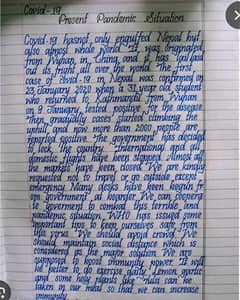 Covid-19
Present Pandemic Situation
Covid-19 hasn't only engulfed Nepal but
also almost whole World. It was originated
from Wuhan, in China, and it has spread
out its fright all over the world. The first
case of covid-19 in Nepal was confirmed on
23 January 2020 when a 31 year old student
who returned to Kathmandu from Wuhan
on 9 January, tested positive for the disease
Then gradually cases started climbing the
uphill, and now more than 2000 people are
reported positive. The government has decided
to lock the country. International and all
domestic flights have been stopped. Almost all
the markets have been closed. We are kindly
requested not to travel or go outside except
emergency. Many desks have been kept in
government at boarder. We can
the government to combat this terrible and
pandemic situation. WHO has issued some
important tips to keep ourselves safe from
this virus. We should avoid crowd. We
should maintain social distance which is
considered as the major solution. We are
supposed to boost immunity power. It will
be better to do exercise daily. Lemon, garlic
and some holy plants like "tulsi" can be
taken in our meal so that we can increase
immunity